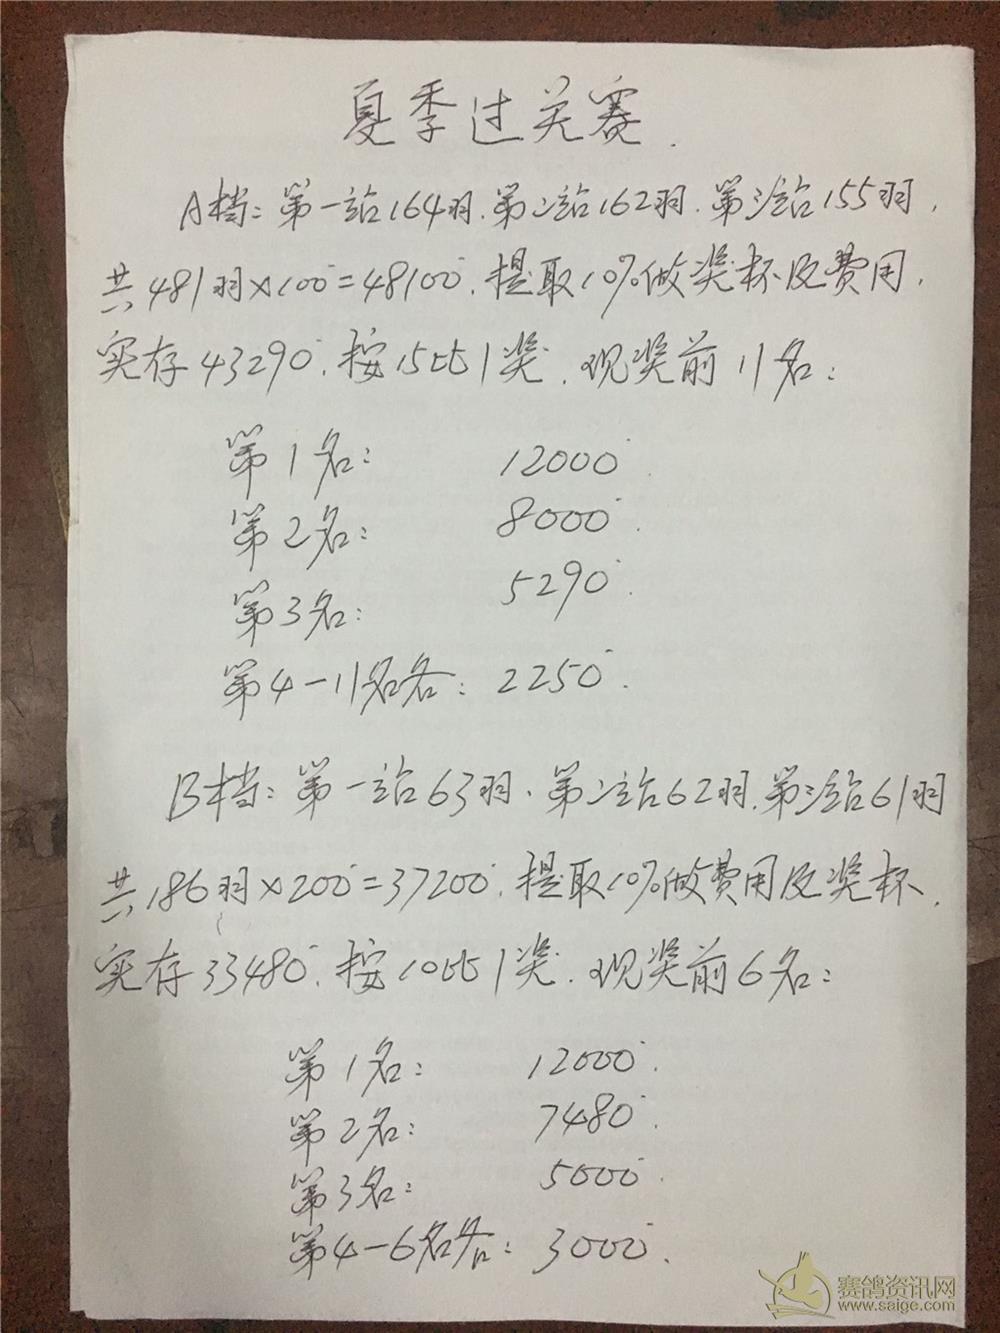 夏季过关赛.
A档：第一站164羽.第二站162羽.第三站155羽,
共481羽×100=48100.提取10%做奖杯及费用,
实存43290.按15比1奖.现奖前11名：
第1名： 12000.
第2名： 8000.
第3名： 5290.
第4-11名各：2250.
B档：第一站63羽、第二站62羽.第三站61羽
共186羽×200=37200.提取10%做费用及奖杯.
实存33480.按10比1奖.现奖前6名：
第1名： 12000.
第2名： 7480.
第3名： 5000.
第4-6名各：3000.
赛鸽资讯网
www.saige.com